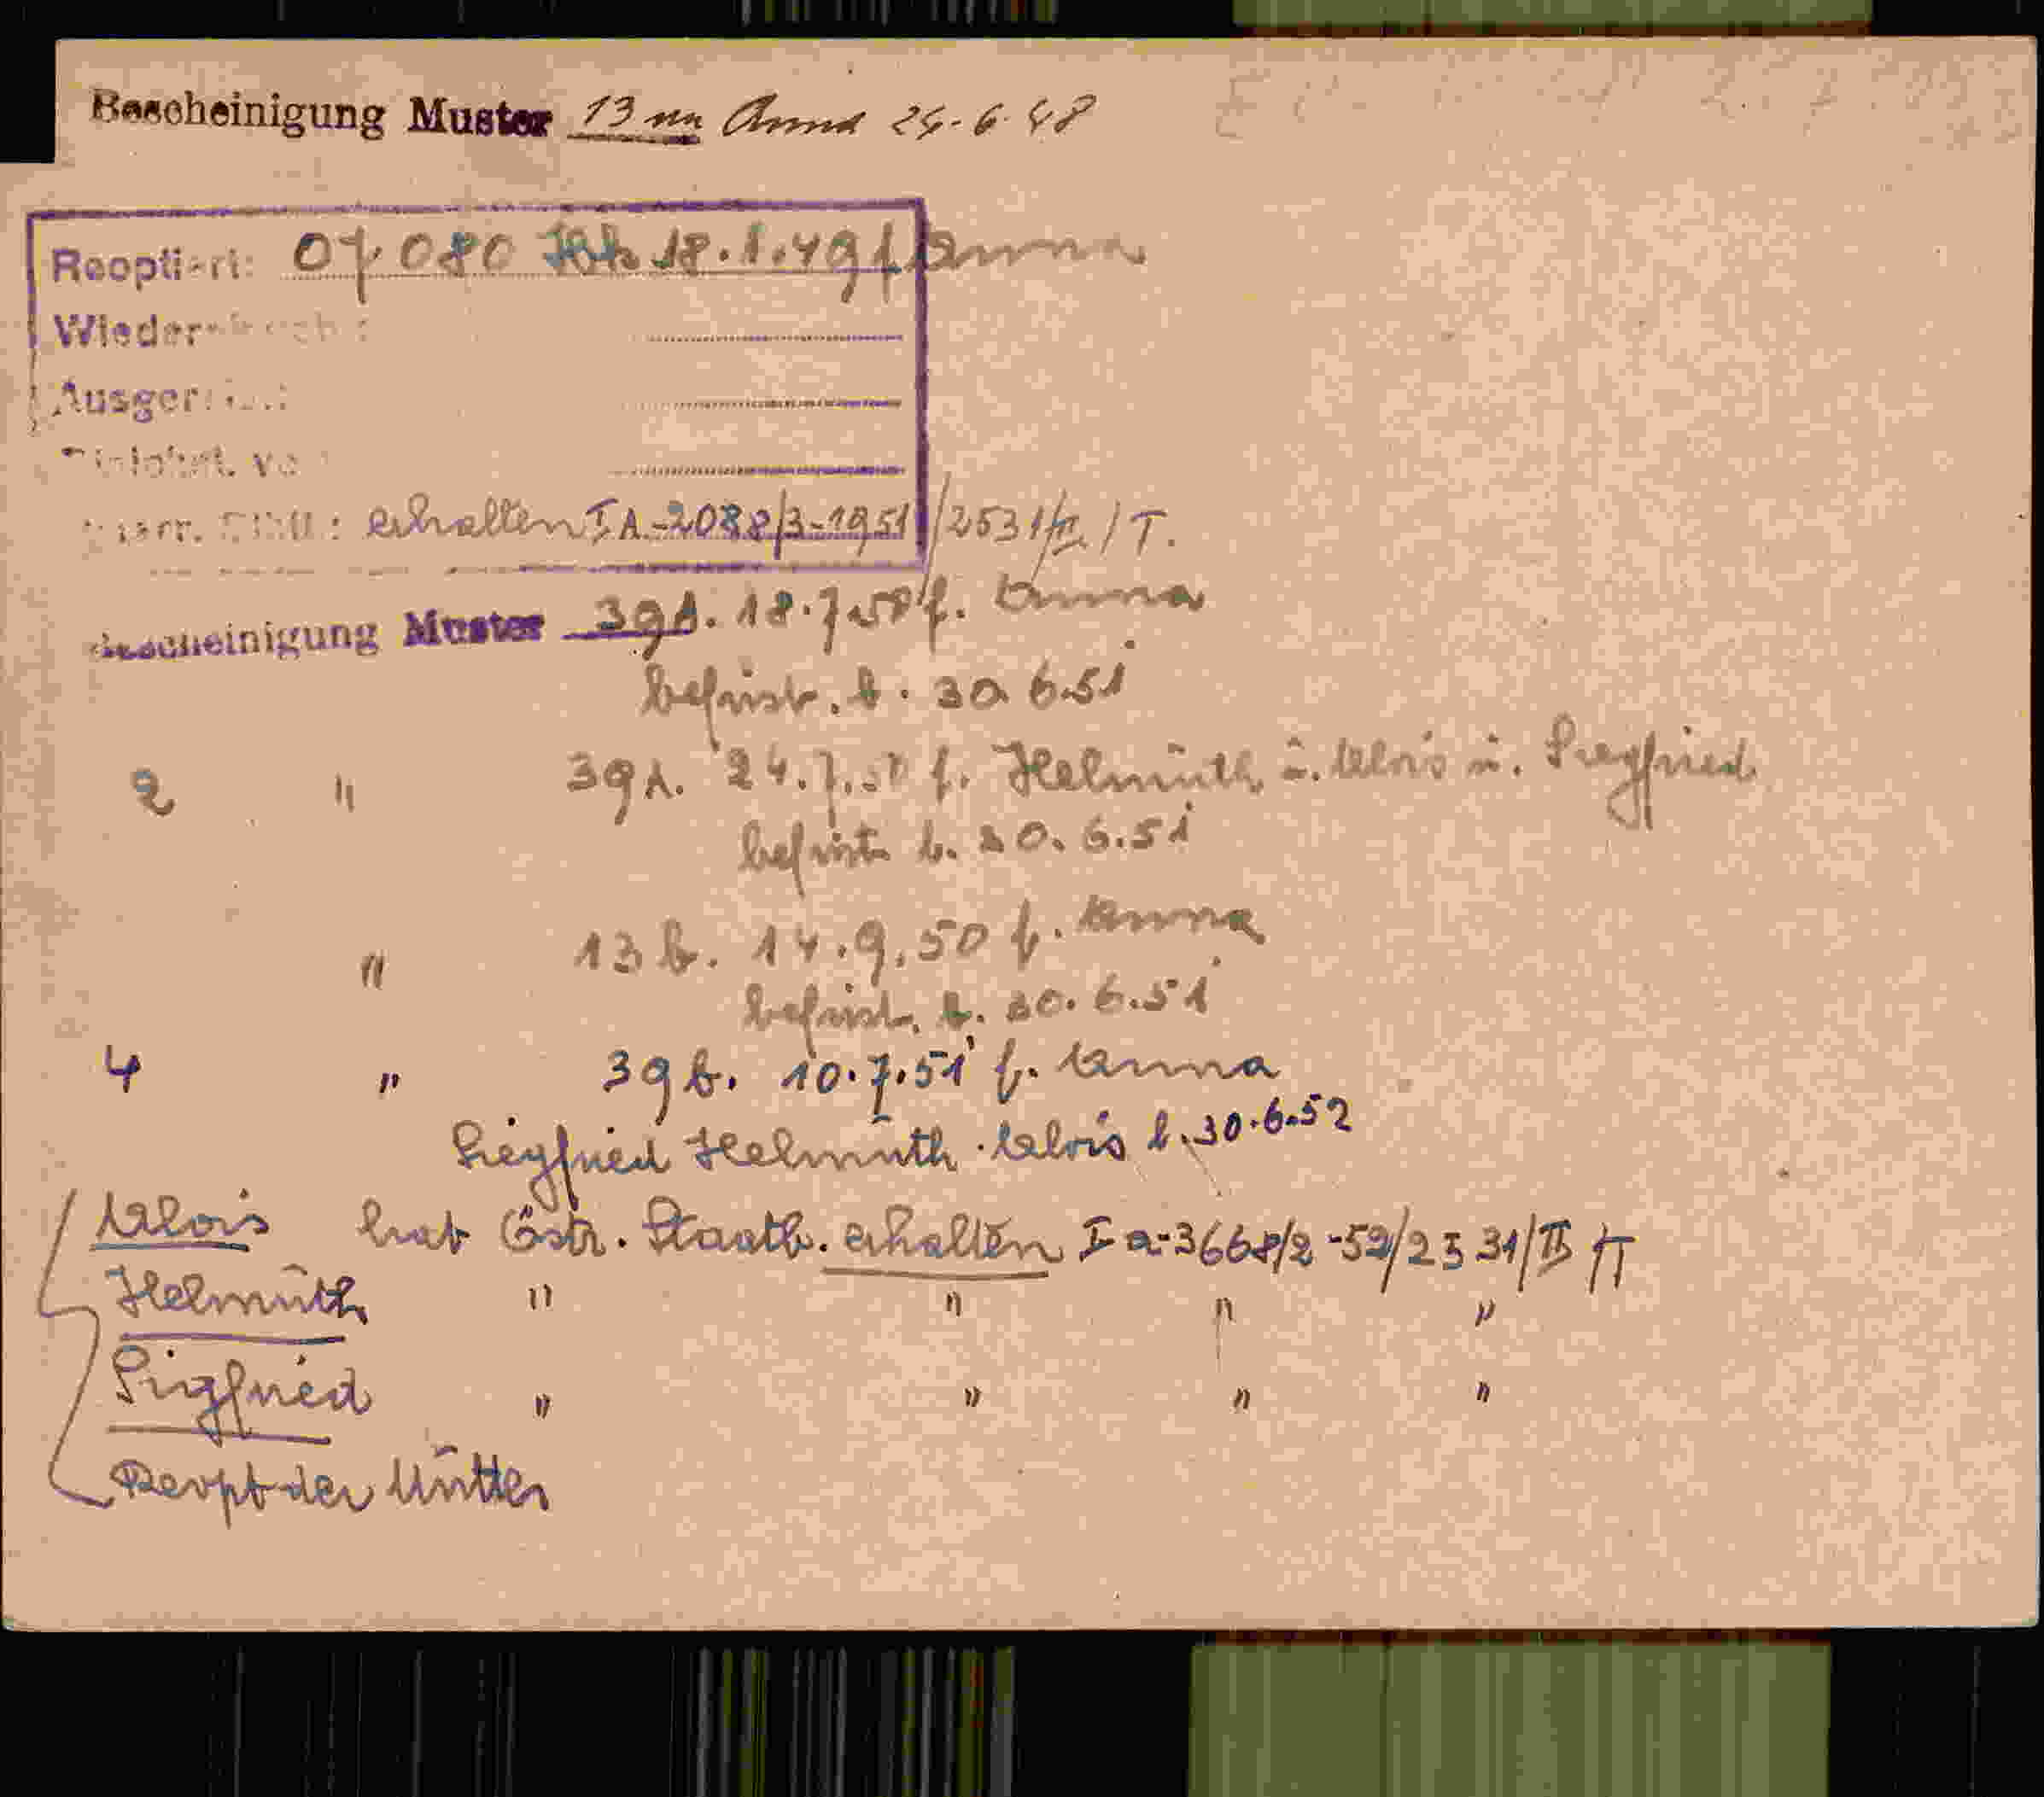 Bescheinigung Muster 13 Anna 24.6.48
Reoptiert: 07.080 18.1.49 f Anna
erhalten I A.-2088/3-1951/2531/II/T.
Bescheinigung Muster 39A. 18.7.50 f. Anna
befrist. b. 30.6.51
2 " 39A. 24.7.50 f. Helmuth u. Alois u. Siegfried
befrist. b. 30.6.51
" 13b. 14.9.50 f. Anna
befrist. b. 30.6.51
4 " 39b. 10.7.51 f. Anna
Siegfried Helmuth Alois b. 30.6.52
Alois hat Östr. Staatb. erhalten I a-3668/2-52/2531/II/T
Helmuth " " " "
Sigfried " " " "
Reopt der Mutter